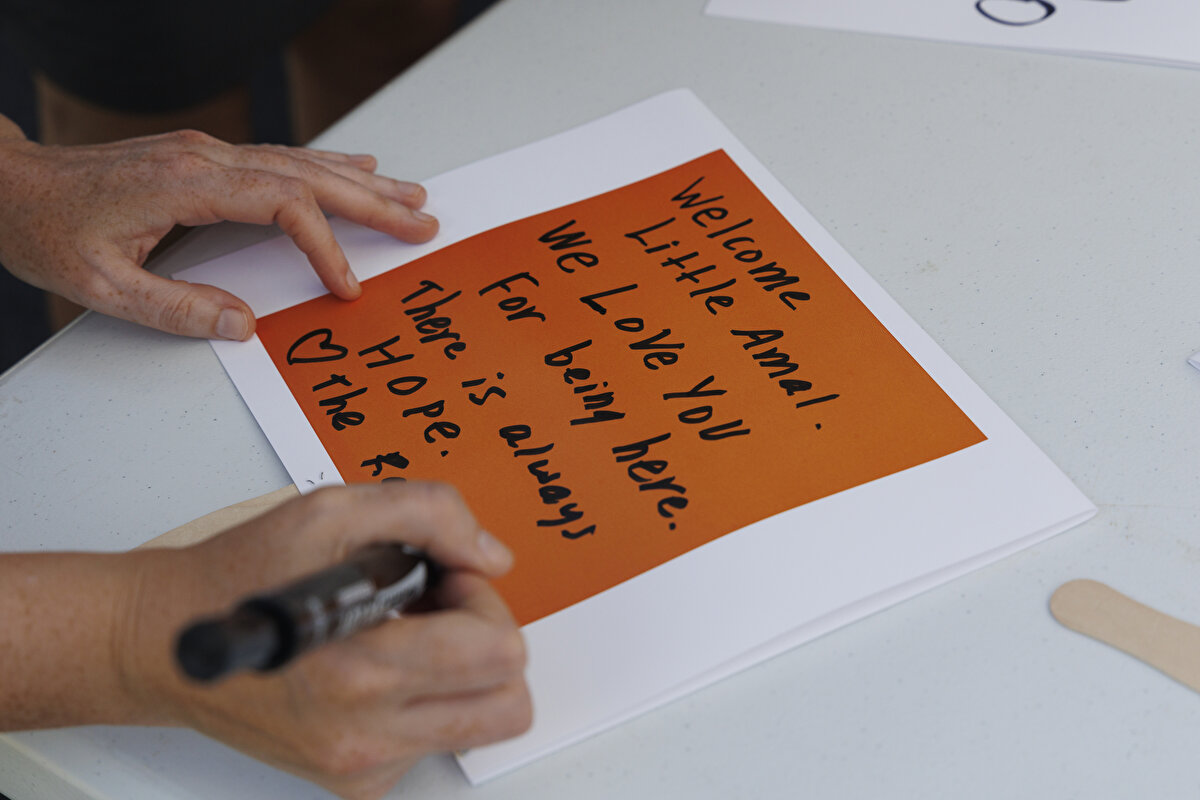 Welcome
Little Amal.
We Love You
For being here.
There is always
Hope.
♡ the